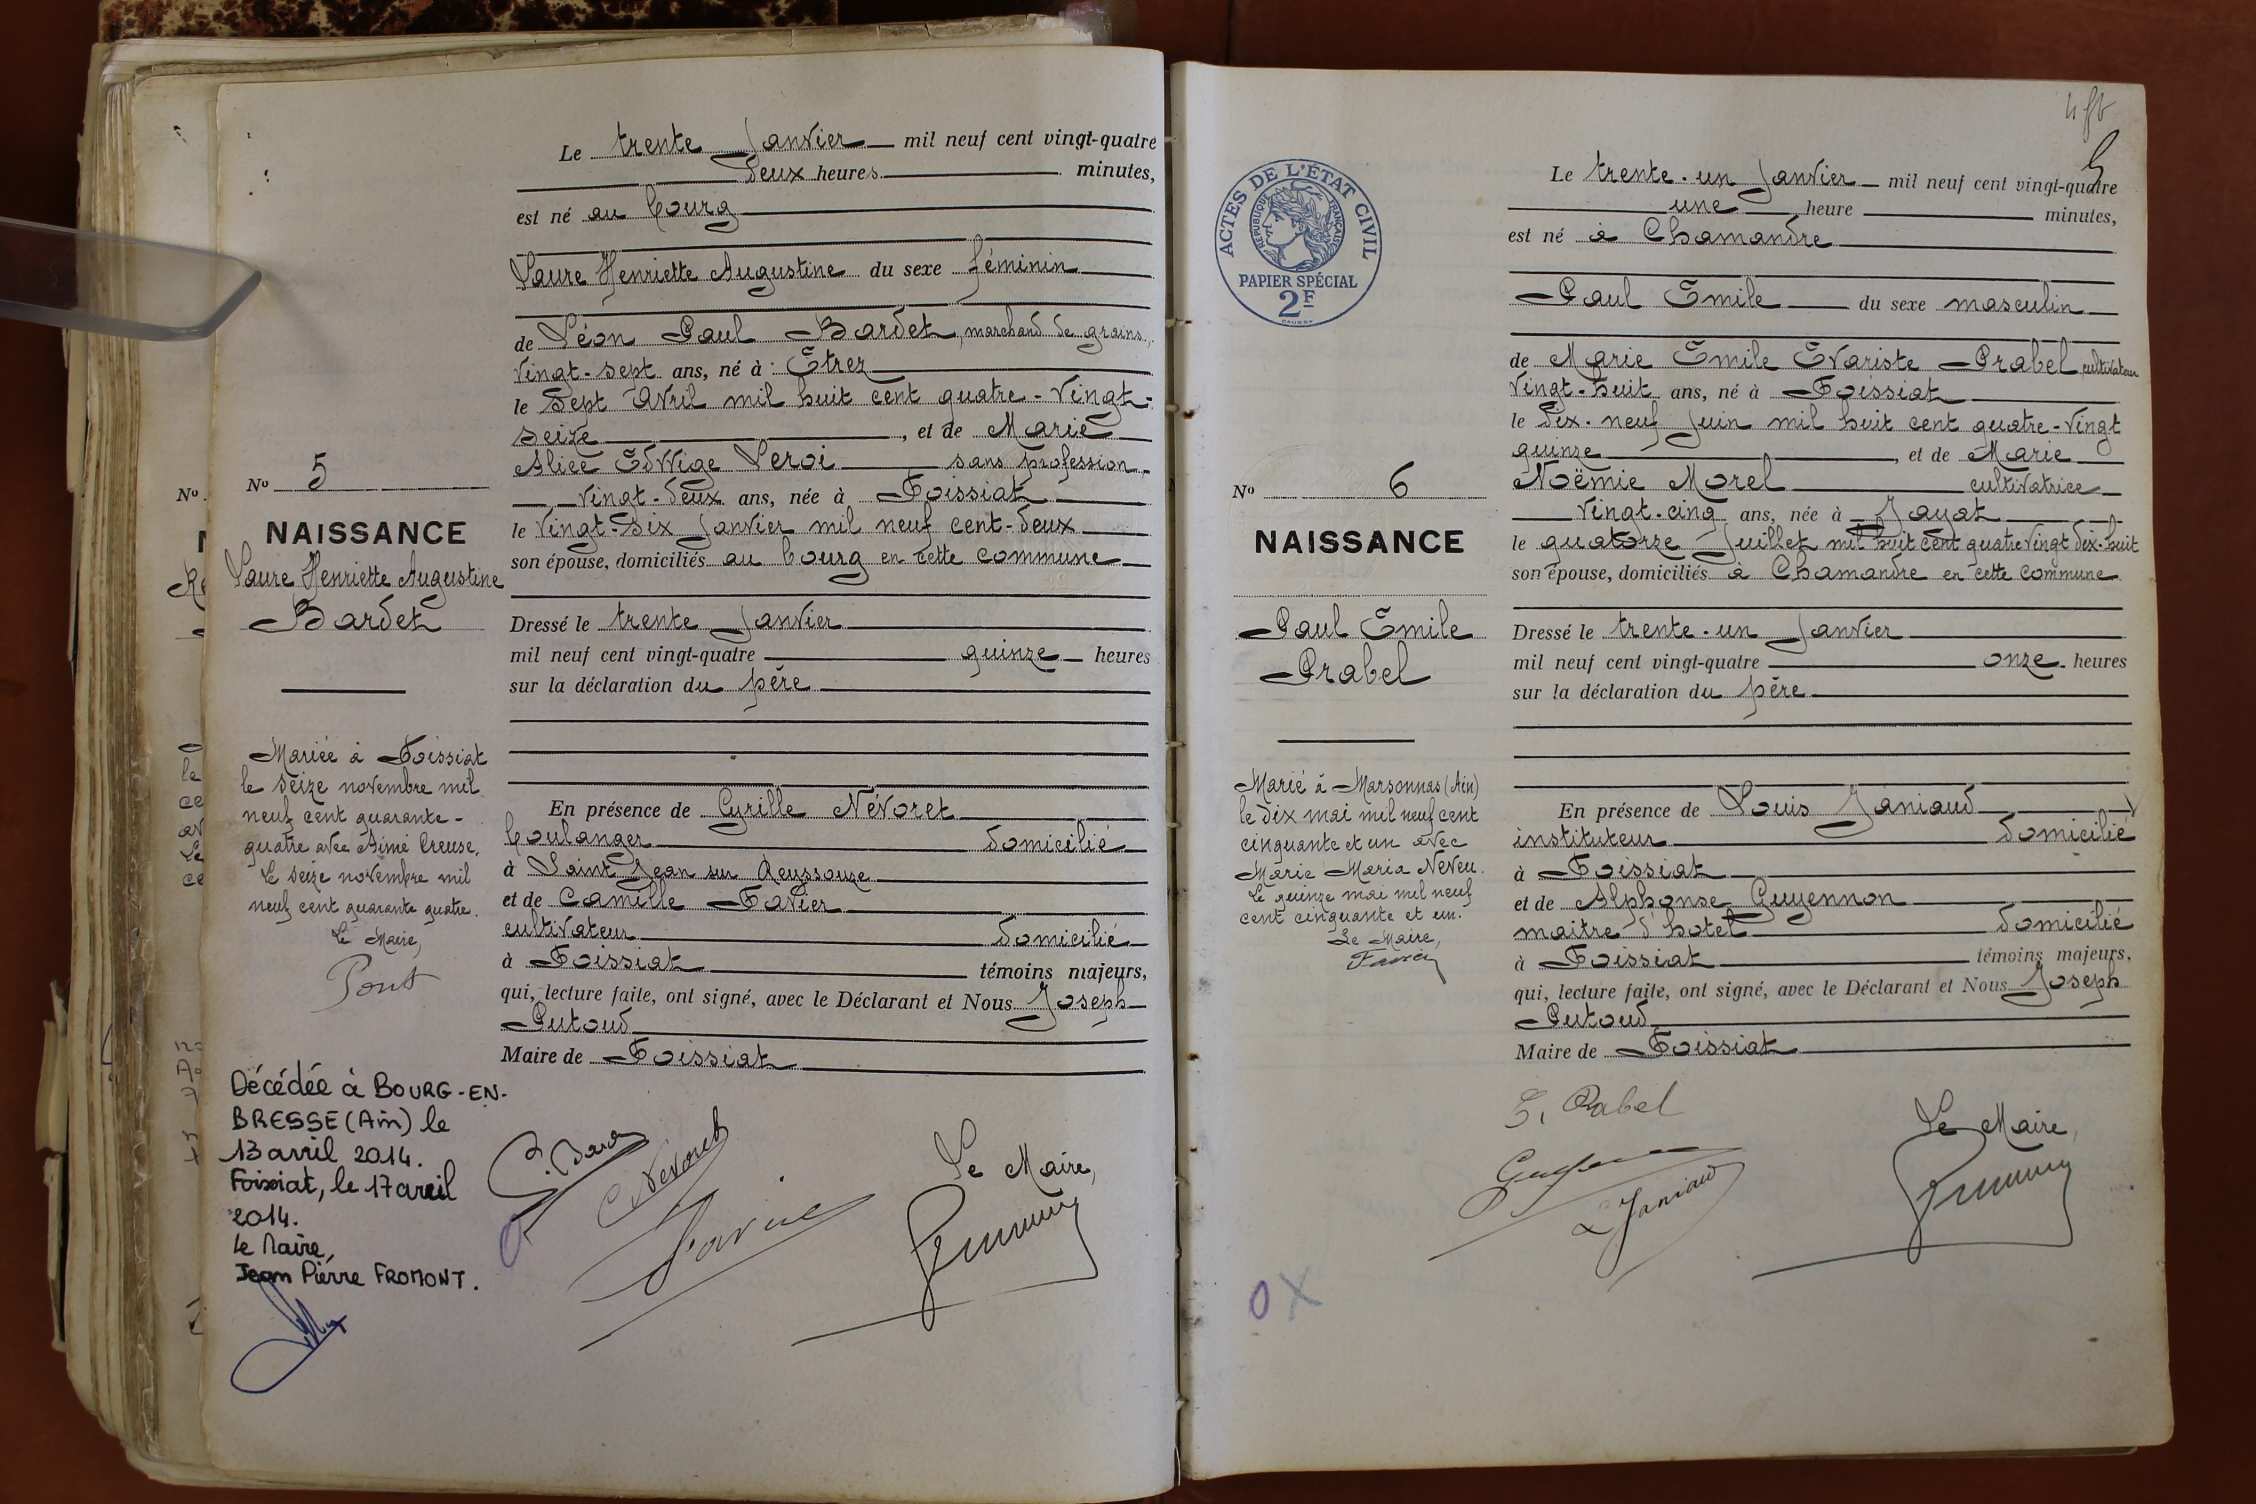 Le trente Janvier mil neuf cent vingt-quatre
deux heures minutes,
est né au bourg
Laure Henriette Augustine du sexe féminin
de Léon Paul Bardet, marchand de grains,
vingt-sept ans, né à Etrez
le sept Avril mil huit cent quatre-vingt-
seize, et de Marie
Alice Edwige Peroi sans profession
vingt-deux ans, née à Foissiat
le vingt-six Janvier mil neuf cent-deux
son épouse, domiciliés au bourg en cette commune
Dressé le trente Janvier
mil neuf cent vingt-quatre quinze heures
sur la déclaration du père
En présence de Cyrille Névoret
boulanger domicilié
à Saint Jean sur Reyssouze
et de Camille Favier
cultivateur domicilié
à Foissiat témoins majeurs,
qui, lecture faite, ont signé, avec le Déclarant et Nous Joseph
Putoud
Maire de Foissiat
C. Névoret
Favier
Le Maire,
No 5
NAISSANCE
Laure Henriette Augustine
Bardet
Mariée à Foissiat
le seize novembre mil
neuf cent quarante-
quatre avec Aimé Creuse.
Le seize novembre mil
neuf cent quarante quatre.
Le Maire,
Pont
Décédée à BOURG-EN-
BRESSE (Ain) le
13 avril 2014.
Foissiat, le 17 avril
2014.
Le Maire,
Jean Pierre FROMONT.
No
5
ACTES DE L'ÉTAT CIVIL
RÉPUBLIQUE FRANÇAISE
PAPIER SPÉCIAL
2F
Le trente-un Janvier mil neuf cent vingt-quatre
une heure minutes,
est né à Chamandre
Paul Emile du sexe masculin
de Marie Emile Evariste Prabel cultivateur
vingt-huit ans, né à Foissiat
le dix-neuf Juin mil huit cent quatre-vingt
quinze, et de Marie
Noëmie Morel cultivatrice
vingt-cinq ans, née à Jayat
le quatorze Juillet mil huit cent quatre vingt dix-huit
son épouse, domiciliés à Chamandre en cette commune
Dressé le trente-un Janvier
mil neuf cent vingt-quatre onze heures
sur la déclaration du père
En présence de Louis Janiaud
instituteur domicilié
à Foissiat
et de Alphonse Guyennon
maitre d'hotel domicilié
à Foissiat témoins majeurs,
qui, lecture faite, ont signé, avec le Déclarant et Nous Joseph
Putoud
Maire de Foissiat
E. Prabel
L Janiaud
Le Maire,
No 6
NAISSANCE
Paul Emile
Prabel
Marié à Marsonnas (Ain)
le dix mai mil neuf cent
cinquante et un avec
Marie Maria Neveu.
Le quinze mai mil neuf
cent cinquante et un.
Le Maire,
Favier
O X